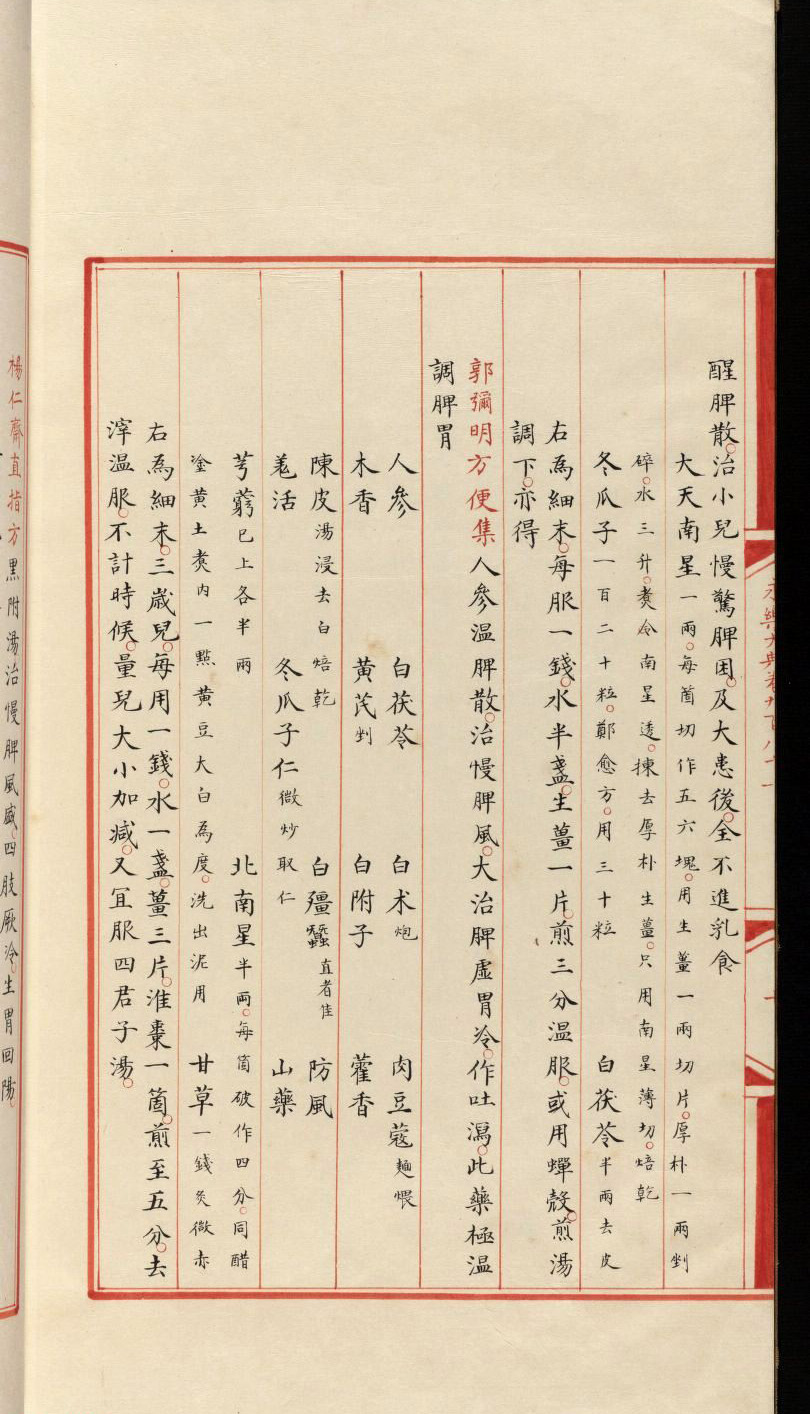 永樂大典卷九百八十一
醒脾散。治小兒慢驚脾困。及大患後。全不進乳食
大天南星一兩。每箇切作五六塊。用生薑一兩切片。厚朴一兩剉
碎。水三升。煑令南星透。揀去厚朴生薑。只用南星薄切。焙乾
冬瓜子一百二十粒。鄭愈方。用三十粒 白茯苓半兩去皮
右為細末。每服一錢。水半盞。生薑一片。煎三分温服。或用蟬殼。煎湯
調下。亦得
郭彌明方便集人參温脾散。治慢脾風。大治脾虛胃冷。作吐瀉。此藥極温
調脾胃
人參 白茯苓 白术炮 肉豆蔻麺煨
木香 黄芪剉 白附子 藿香
陳皮湯浸去白焙乾 白殭蠶直者佳 防風
羗活 冬瓜子仁微炒取仁 山藥
芎藭已上各半兩 北南星半兩。每箇破作四分。同醋
塗黄土煑内一㸃黄豆大白為度。洗出泥用 甘草一錢炙微赤
右為細末。三歲兒。每用一錢。水一盞。薑三片。淮棗一箇。煎至五分。去
滓温服。不計時候。量兒大小加减。又冝服四君子湯。
楊仁齋直指方黑附湯治慢脾風盛。四肢厥冷。生胃回陽。